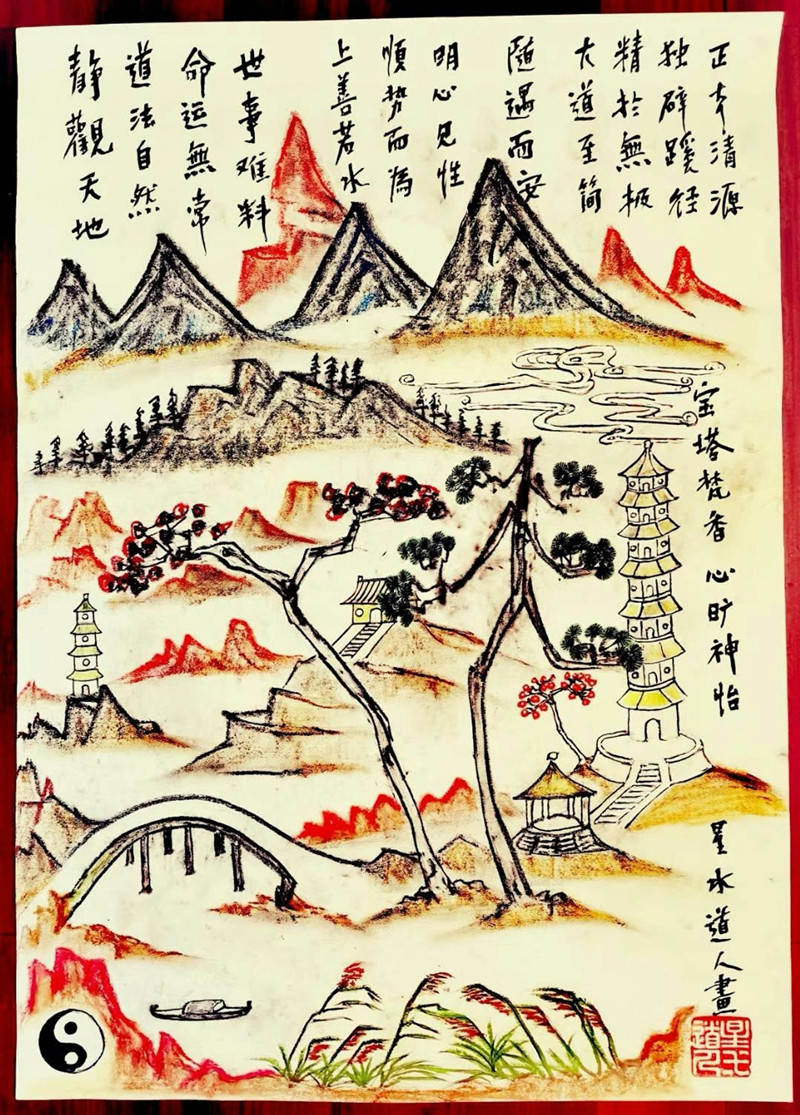 正本清源
独辟蹊径
精於無极
大道至简
随遇而安
明心见性
順势而為
上善若水
世事难料
命运無常
道法自然
静觀天地
宝塔梵香 心旷神怡
星水道人畫